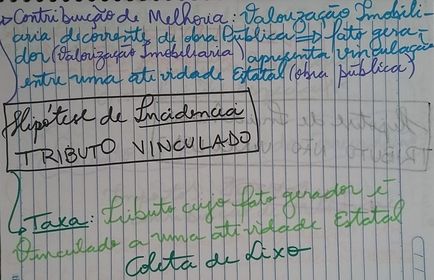 Contribuição de Melhoria: Valorização Imobili-
aria decorrente de obra Pública => fato gera-
dor (Valorização Imobiliaria) apresenta vinculação
entre uma atividade Estatal (obra pública)
Hipótese de Incidencia
TRIBUTO VINCULADO
Taxa: Tributo cujo fato gerador é
Vinculado a uma atividade Estatal
Coleta de Lixo